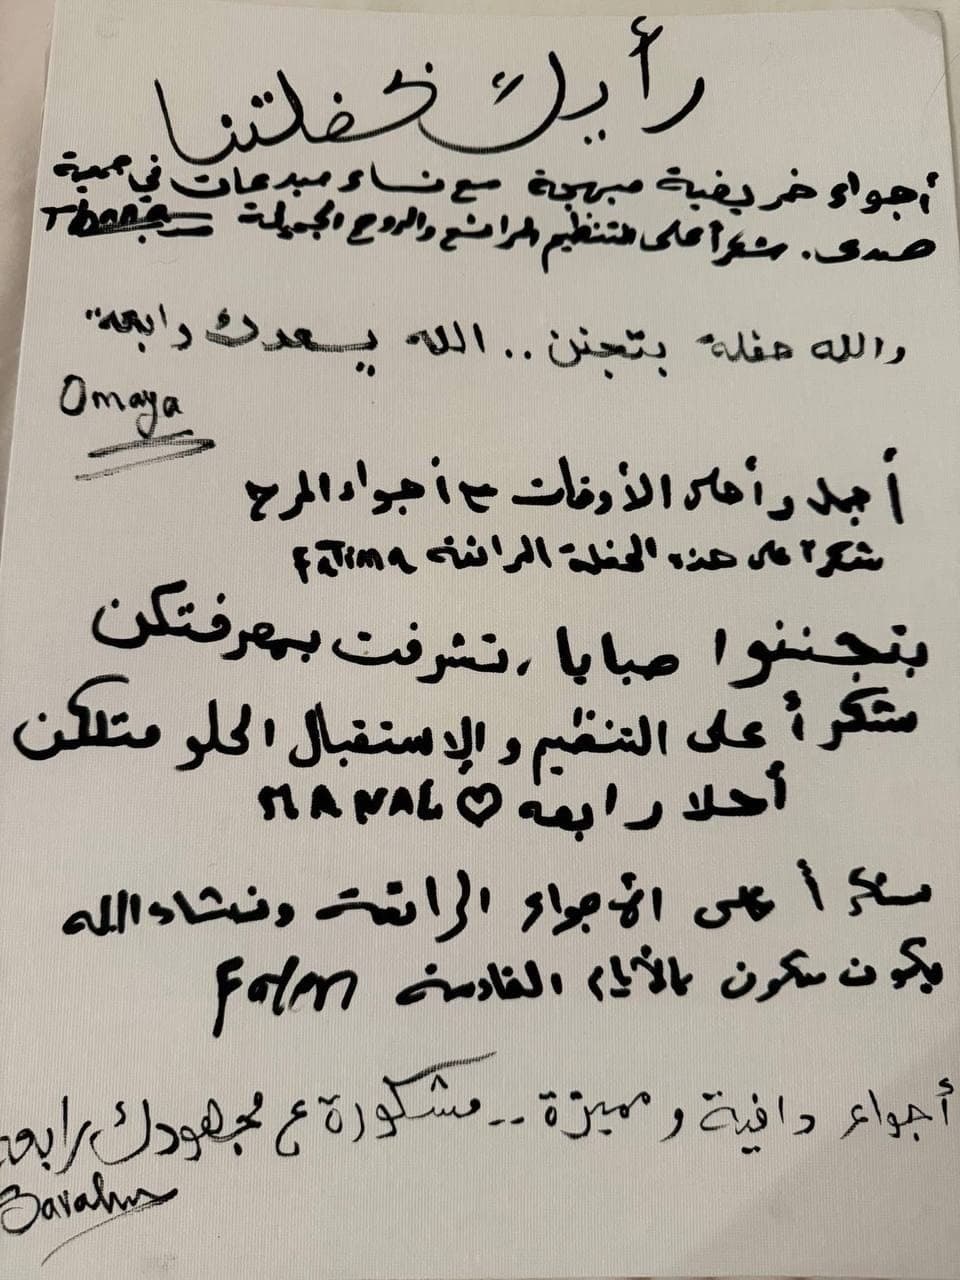 رأيك بحفلتنا
أجواء خريفية مبهجة مع نساء مبدعات في جمعية
صدى. شكراً على التنظيم الرائع والروح الجميلة Thana
والله حفلة بتجنن .. الله يسعدك رابعة
Omaya
أجمل وأحلى الأوقات مع أجواء المرح
شكراً على هذه الحفلة الرائعة FaTima
بتجننوا صبايا ، تشرفت بمعرفتكن
شكراً على التنظيم والإستقبال الحلو متلكن
أحلا رابعه MANAL ♡
شكراً على الأجواء الرائعة ونشاءالله
يكون بالأيام القادمة
أجواء دافية ومميزة .. مشكورة ع مجهودك رابعة